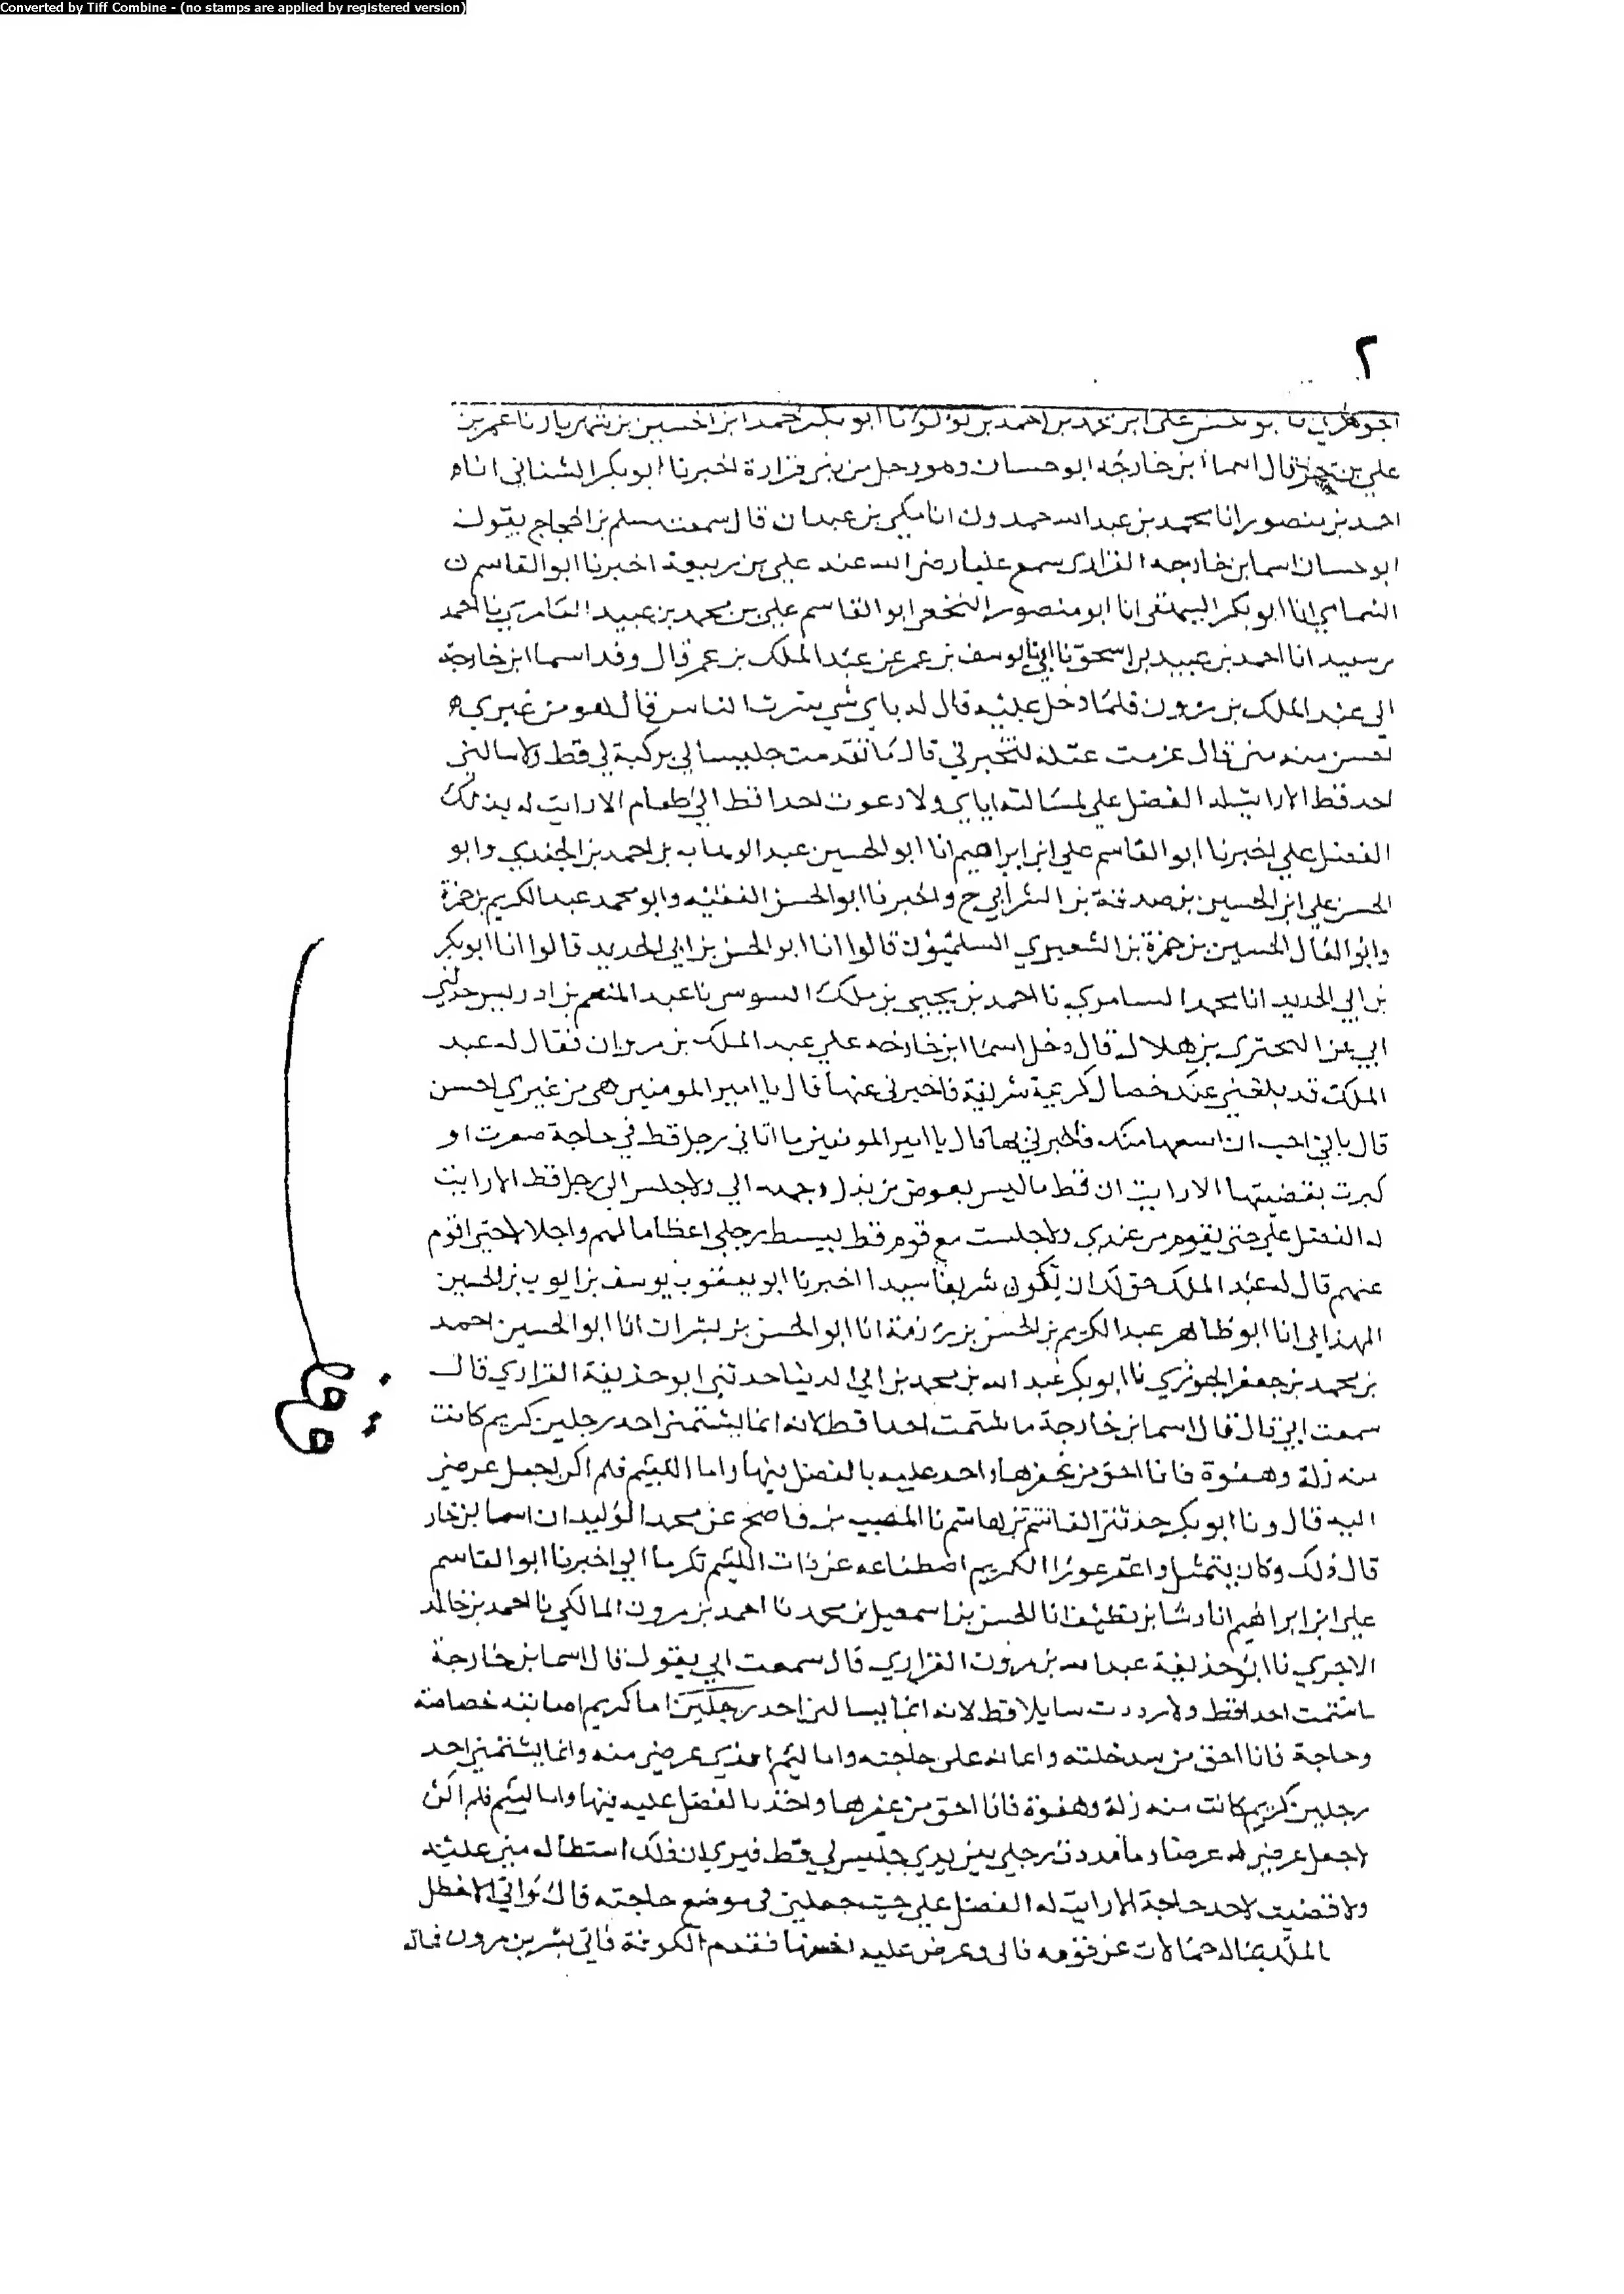 Converted by Tiff Combine - (no stamps are applied by registered version)
٢
الجوهري نا ابو الحسن علي ابن محمد بن احمد بن لولو نا ابو بكر احمد ابن الحسين بن شهريار نا عمر بن
علي بن قال اسما ابن خارجه ابو حسان وهو رجل من بني فزارة اخبرنا ابو بكر الشقاني انا
احمد بن منصور انا محمد بن عبد الله حمدون انا مكي بن عبدان قال سمعت مسلم بن الحجاج يقول
ابو حسان اسما بن خارجه الفزاري سمع عليا رضي الله عنه علي بن ربيعة اخبرنا ابو القاسم
الشحامي انا ابو بكر البيهقي انا ابو منصور النخعي ابو القاسم علي بن محمد بن عبيد العامري نا احمد
سعيد انا احمد بن عبيد بن اسحق نا ابي نا يوسف بن عمر عن عبد الملك بن عمر قال وفد اسما ابن خارجة
الي عبد الملك بن مرون فلما دخل عليه قال له باي شي سدت الناس قال هو من غيري
احسن منه مني قال عزمت عليك لتخبرني قال ما تقدمت جليسا لي بركبة لي قط ولا سالني
احد قط الا رايت له الفضل علي لمسالته اياي ولا دعوت احدا قط الي طعام الا رايت له بذلك
الفضل علي اخبرنا ابو القاسم علي ابن ابراهيم انا ابو الحسين عبد الوهاب بن احمد بن الجندي وابو
الحسن علي ابن الحسين بن صدقة بن الشرابي ح واخبرنا ابو الحسن الفقيه وابو محمد عبد الكريم بن حمزة
وابو الحسين بن حمزة بن الشعيري السلميون قالوا انا ابو الحسن بن ابي الحديد قالوا انا ابو بكر
بن ابي الحديد انا محمد السامري نا احمد بن يحيى بن ملك السوسي نا عبد المنعم بن ادريس حدثني
ابي عن البحتري بن هلال قال دخل اسما ابن خارجه علي عبد الملك بن مروان فقال له عبد
الملك قد بلغني عنك خصال كريمة شريفة فاخبرني عنها قال يا امير المومنين هي من غيري احسن
قال باني احب ان اسمعها منك فاخبرني بها قال يا امير المومنين ما اتاني رجل قط في حاجة صغرت او
كبرت بقضيتها الا رايت ان قط ما ليس بعوض من بذل وجهه الي ولا جلس الي رجل قط الا رايت
له الفضل علي حتى يقوم من عندي ولا جلست مع قوم قط ببسط رجلي اعظاما لهم واجلالا حتى اقوم
عنهم قال له عبد الملك حق لك ان تكون شريفا سيدا اخبرنا ابو يعقوب يوسف بن ايوب بن الحسين
الهمذاني انا ابو طاهر عبد الكريم بن الحسن بن رزمة انا ابو الحسن بن بشران انا ابو الحسين احمد
بن محمد بن جعفر الجوزي نا ابو بكر عبد الله بن محمد بن ابي الدنيا حدثني ابو حذيفة الفزاري قال
سمعت ابي قال قال اسما بن خارجة ما شتمت احدا قط لانه انما يشتمني احد رجلين كريم كانت
منه زلة وهفوة فانا احق من غفرها واحد عليه بالفضل فيها واما اللئيم فلم اكن لجعل عرضي
اليه قال ونا ابو بكر حدثني القاسم بن هاشم نا المسيب بن واضح عن محمد الوليد ان اسما بن خار
قال ذلك وكان يتمثل واغفر عورا الكريم اصطناعه عن ذات اللئيم تكرما الي اخبرنا ابو القاسم
علي ابن ابراهيم انا رشا بن نظيف انا الحسن بن اسمعيل بن محمد نا احمد بن مرون المالكي نا احمد بن خالد
الاجري نا ابو حذيفة عبد الله بن مرون الفزاري قال سمعت ابي يقول قال اسما بن خارجة
ما شتمت احدا قط ولا رددت سايلا قط لانه انما يسالني احد رجلين اما كريم اصابته خصاصة
وحاجة فانا احق من سد خلته واعانه على حاجته واما لئيم افدي عرضي منه وانما يشتمني احد
رجلين كريم كانت منه زلة وهفوة فانا احق من غفرها واخذ بالفضل عليه فيها واما لئيم فلم اكن
لاجعل عرضي له عرضا وما مددت رجلي بين يدي جليس لي قط فيري ان ذلك استطاله مني عليه
ولا قضيت لاحد حاجة الا رايت له الفضل علي حيث جعلني في موضع حاجته قال واتي الاخطل
الملك حمالات عن قومه فابي وعرض عليه نصفها فقدم الكوفة فاتي بشر بن مرون فساله
فقف